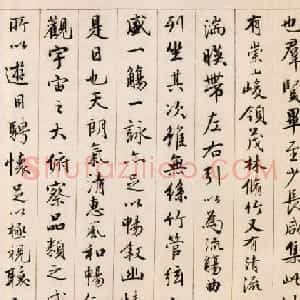 也羣賢畢至少長咸集此
有崇山峻領茂林脩竹又有清流
湍暎帶左右引以為流觴曲
列坐其次雖無絲竹管絃
盛一觴一詠亦足以暢敘幽情
是日也天朗氣清惠風和暢仰
觀宇宙之大俯察品類之盛
所以遊目騁懷足以極視聽
Shufaziliao.com